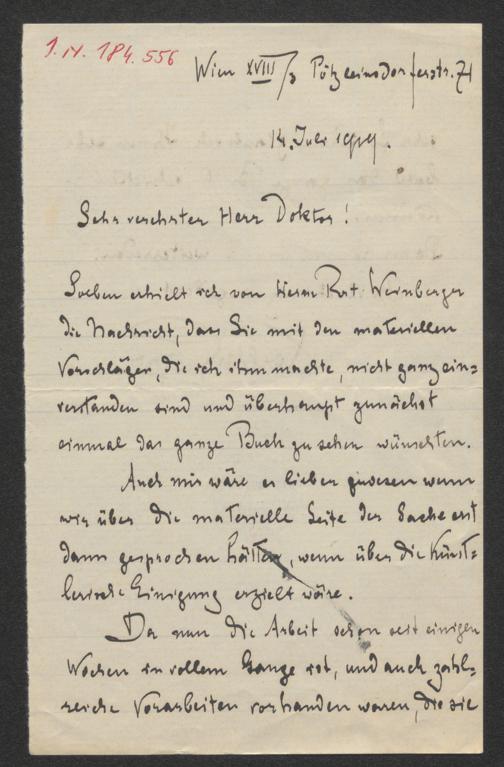 I. N. 184.556
Wien XVIII/3 Pötzleinsdorferstr. 71
14. Juli 1919.
Sehr verehrter Herr Doktor!
Soeben erhielt ich von Herrn Rat Weinberger
die Nachricht, dass Sie mit den materiellen
Vorschlägen, die ich ihm machte, nicht ganz ein=
verstanden sind und überhaupt zunächst
einmal das ganze Buch zu sehen wünschten.
Auch mir wäre es lieber gewesen wenn
wir über die materielle Seite der Sache erst
dann gesprochen hätten, wenn über die künst=
lerische Einigung erzielt wäre.
Da nun die Arbeit schon seit einigen
Wochen in vollem Gange ist, und auch zahl=
reiche Vorarbeiten vorhanden waren, die sie